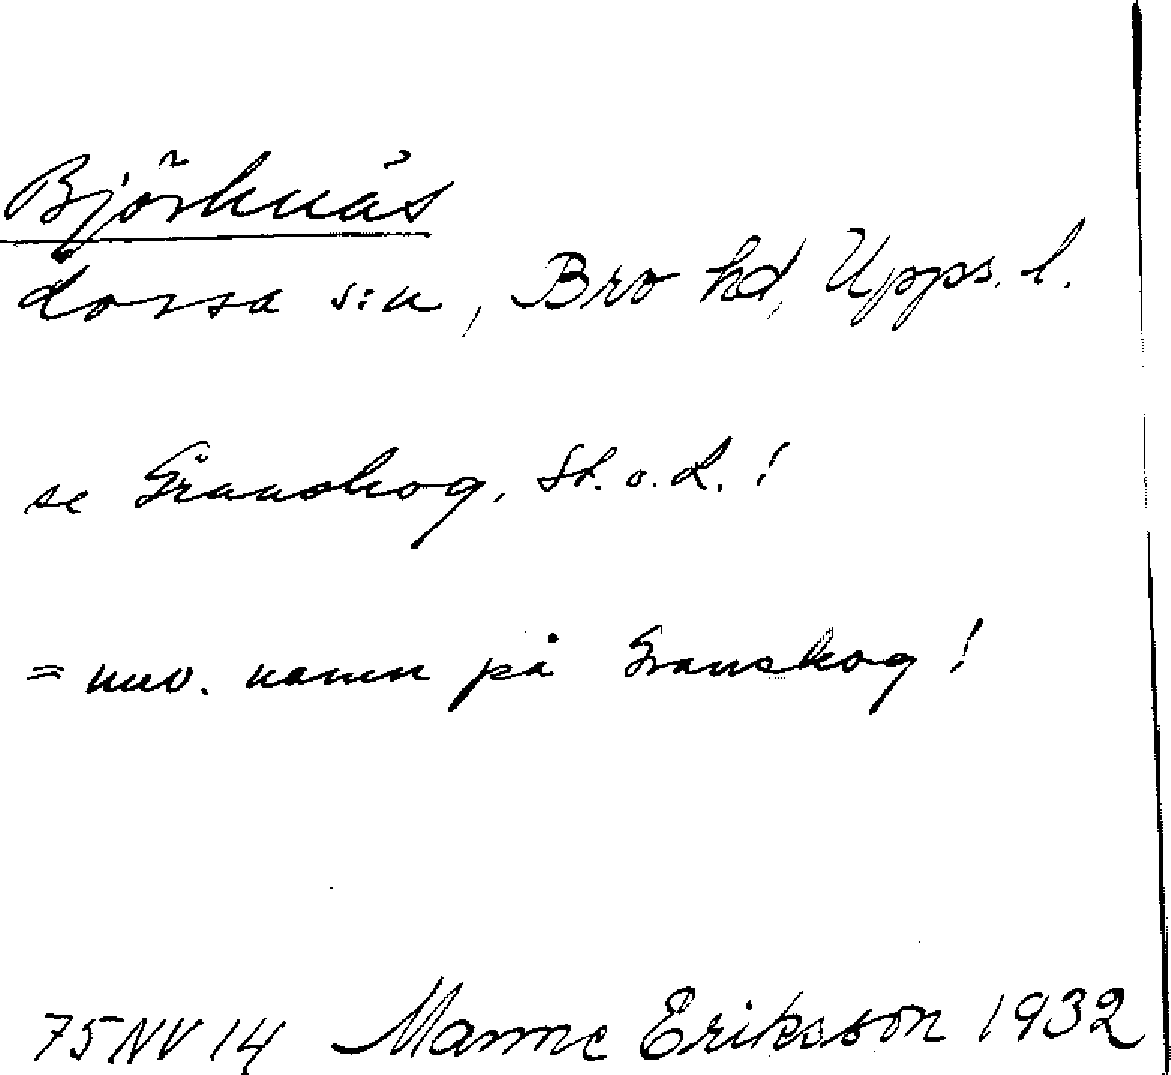 Björknäs
Lossa s:n, Bro hd, Upps. l.
se Granskog, St. o. L. !
= nuv. namn på Granskog !
75NV14 Manne Eriksson 1932